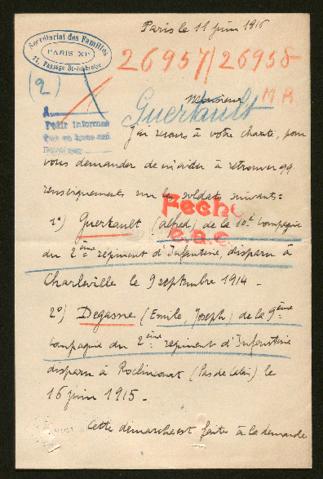 Paris le 11 juin 1916
Secrétariat des Familles
PARIS XIe
26957/26958
(2)
MR
Monsieur
Guerkault
J'ai recours à votre charité, pour
vous demander de m'aider à retrouver qq
renseignements sur les soldats suivants:
Fiche
1°) Guerkault (Alfred) de la 10e compagnie
du 2ème régiment d'Infanterie, disparu à
Charleville le 9 septembre 1914.
2°) Degasne (Emile Joseph) de la 9ème
compagnie du 2ème régiment d'Infanterie
disparu à Roclincourt (Pas de Calais) le
16 juin 1915.
Cette démarche est faite à la demande